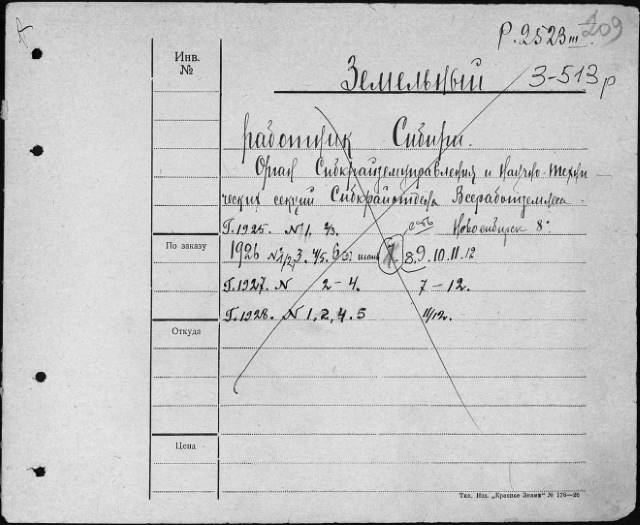 Р. 2523 III 209
Инв. №
Земельный
З-513 р
работник Сибири.
Орган Сибкрайземуправления и Научно-Техни-
ческих секций Сибкрайотдела Всеработземлеса
Г. 1925. № 1. 2/3. Новосибирск 8°
По заказу
1926 № 1/2, 3. 4/5. 6 7. 8, 9. 10. 11. 12
Г. 1927. № 2-4. 7-12.
Г. 1928. № 1, 2, 4, 5 11/12.
Откуда
Цена
Тип. Изд. „Красное Знамя“ № 176—26